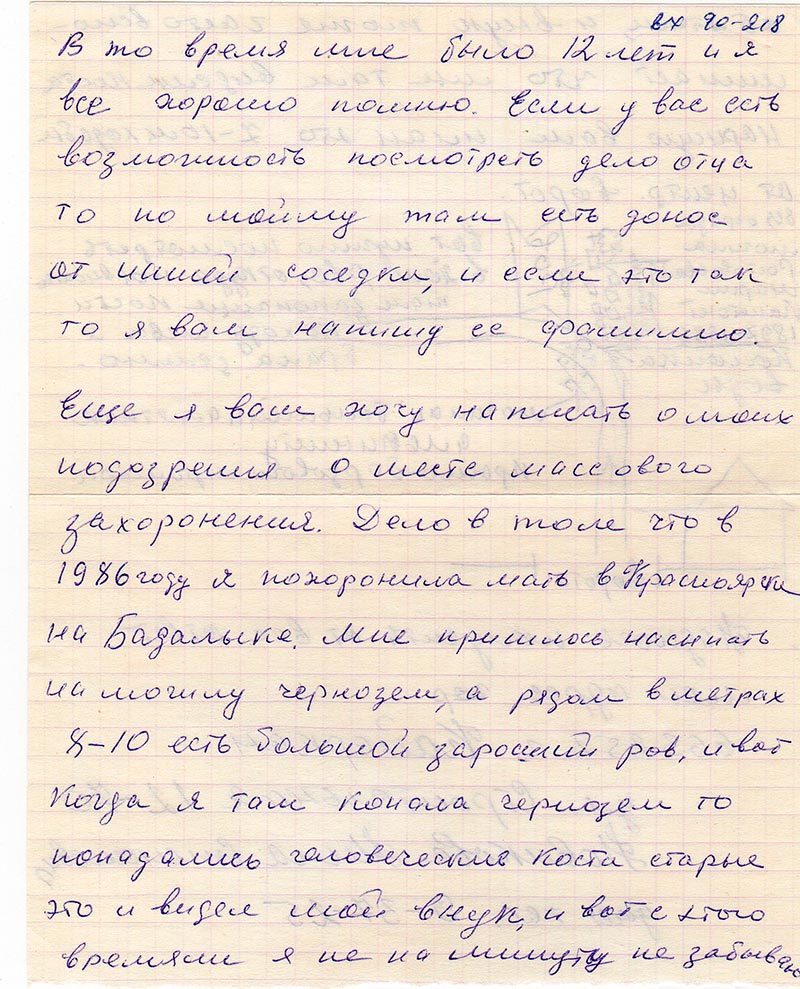 вх 90-218
В то время мне было 12 лет и я
все хорошо помню. Если у вас есть
возможность посмотреть дело отца
то по моиму там есть донос
от нашей соседки, и если это так
то я вам напишу ее фамилию.
Еще я вам хочу написать о моих
подозрения о месте массового
захоронения. Дело в толе что в
1986 году я похоронила мать в Красноярске
на Бадалыке. Мне пришлось насыпать
на могилу чернозем, а рядом в метрах
8-10 есть большой заросший ров, и вот
когда я там копала чернозем то
попадались человеческие кости старые
это и видел мой внук, и вот с этого
времями я не на минуту не забываю